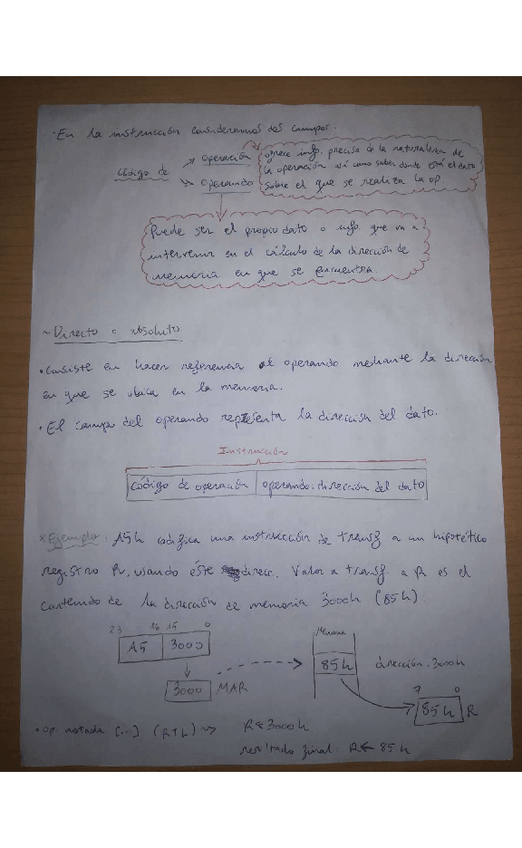 · En la instrucción consideramos dos campos:
Código de
operación
operando
ofrece info. precisa de la naturaleza de
la operación así como saber dónde está el dato
sobre el que se realiza la op.
Puede ser el propio dato o info. que va a
intervenir en el cálculo de la dirección de
memoria en que se encuentra.
~ Directo o absoluto
· Consiste en hacer referencia al operando mediante la dirección
en que se ubica en la memoria.
· El campo del operando representa la dirección del dato.
Instrucción
código de operación operando: dirección del dato
* Ejemplo: A5h codifica una instrucción de transf a un hipotético
registro R, usando éste direcc. Valor a transf. a R es el
contenido de la dirección de memoria 3000h (85h)
23 16 15 0
A5 3000
3000 MAR
Memoria
85h dirección 3000h
7 0
85h R
· Op. notada [...]
R ← 3000h
resultado final: R ← 85h